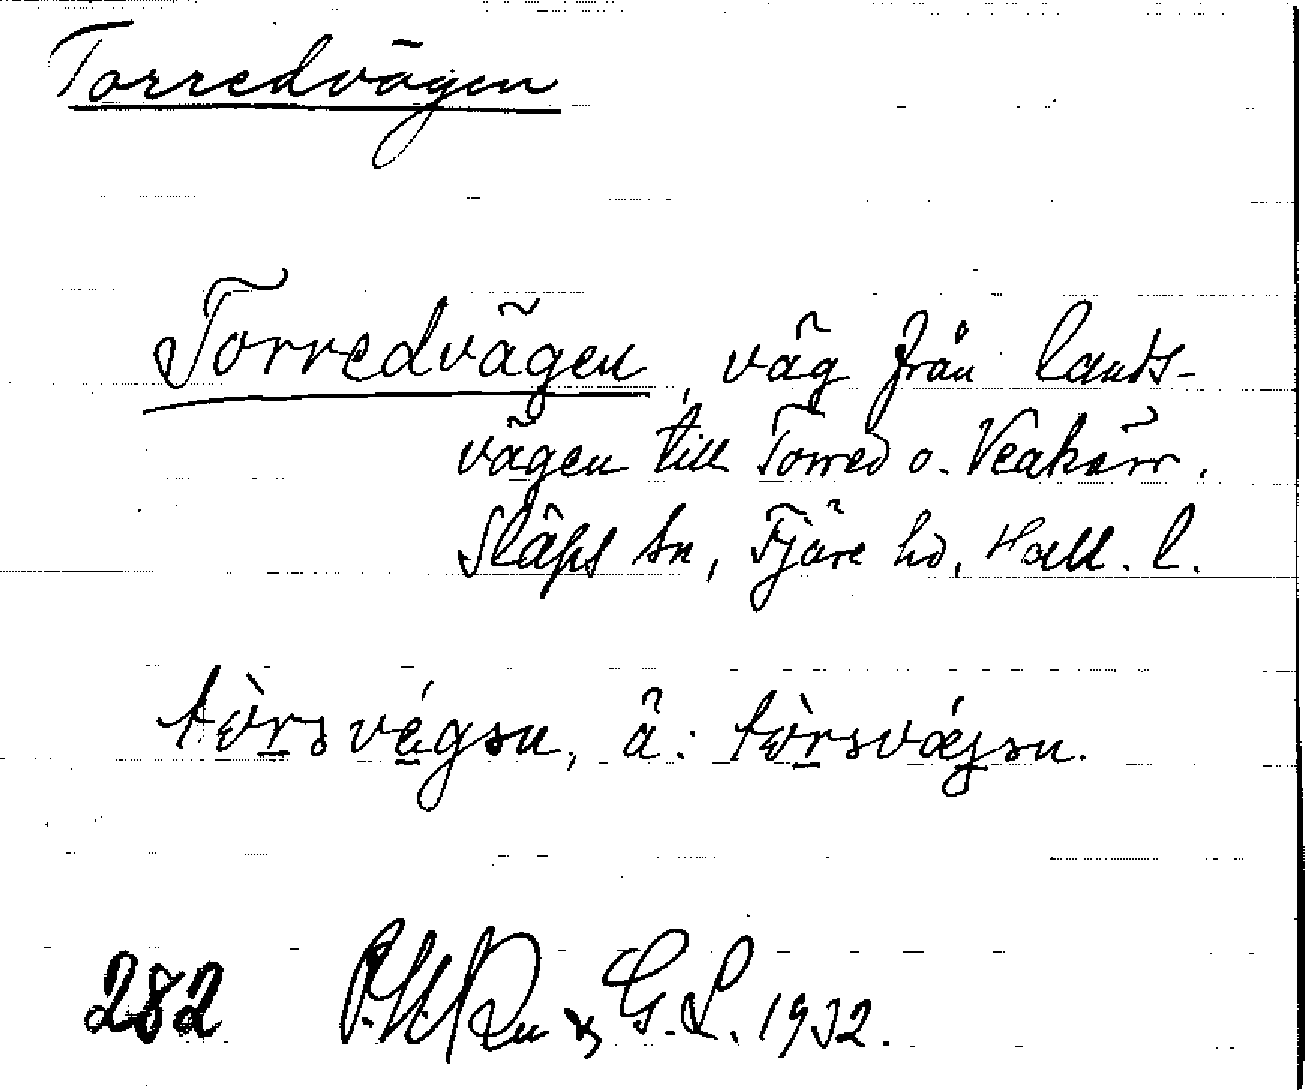 Torredvägen
Torredvägen, väg från lands-
vägen till Torred o. Veakärr.
Släps sn, Fjäre hd, Hall. l.
tòrəvégən, ä: tòrəvǽjən.
282 G. L. 1932.